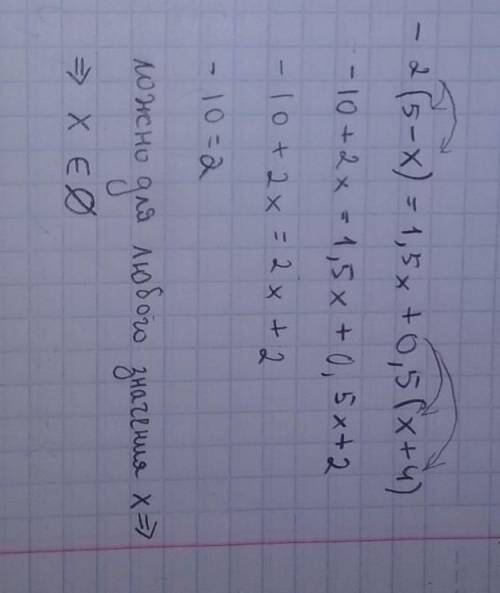 - 2(5-x) = 1,5x + 0,5(x+4)
- 10 + 2x = 1,5x + 0,5x + 2
- 10 + 2x = 2x + 2
- 10 = 2
ложно для любого значения x ⇒
⇒ x ∈ ∅